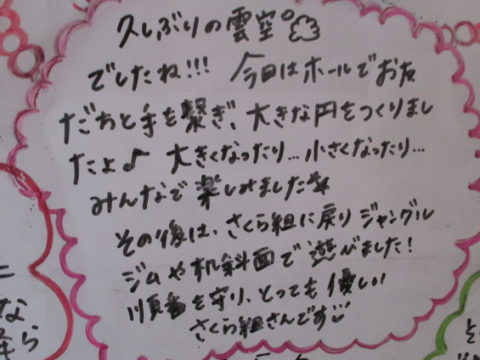 久しぶりの雲空°
でしたね!!! 今日はホールでお友
だちと手を繋ぎ、大きな円をつくりまし
たよ♪ 大きくなったり…小さくなったり…
みんなで楽しみました
その後は、さくら組に戻りジャングル
ジムや机斜面で遊びました!
順番を守り、とっても優しい
さくら組さんです